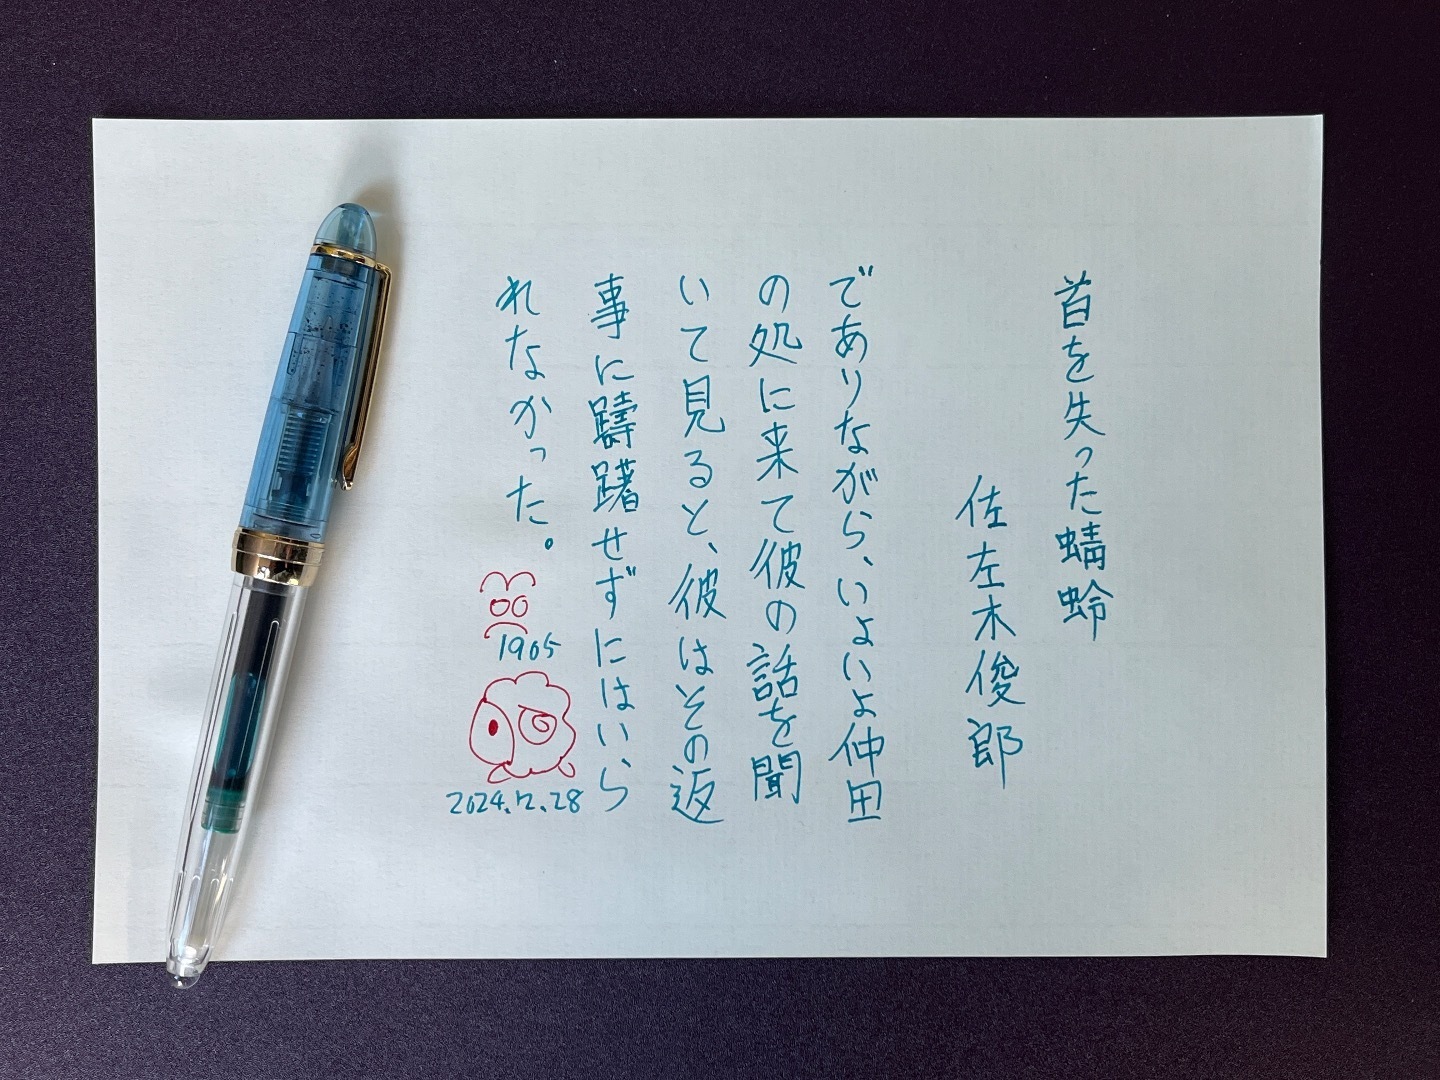 首を失った蜻蛉
佐左木俊郎
でありながら、いよいよ仲田
の処に来て彼の話を聞
いて見ると、彼はその返
事に躊躇せずにはいら
れなかった。
1905
2024.12.28